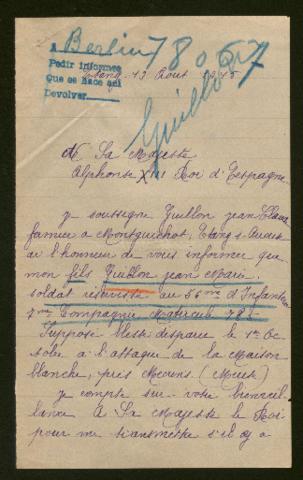 A Berlin 780
Pedir informes
Que se hace aqui
Devolver
Etang 13 Aout 1915
Guillon
A Sa Majesté
Alphonse XIII Roi d'Espagne
je soussigné Guillon jean Claude
fermier a Montguichot, Etang s. Arroux
ai l'honneur de vous informer que
mon fils Guillon jean Marie
soldat réserviste au 56me d'Infanterie
7me Compagnie Matricule
Suppose blessé disparu le 1er Oc
tobre a l'attaque de la Maison
blanche, près (Meuse)
je compte sur votre bienveil
lance A Sa Majesté le Roi
pour me transmettre s'il y a